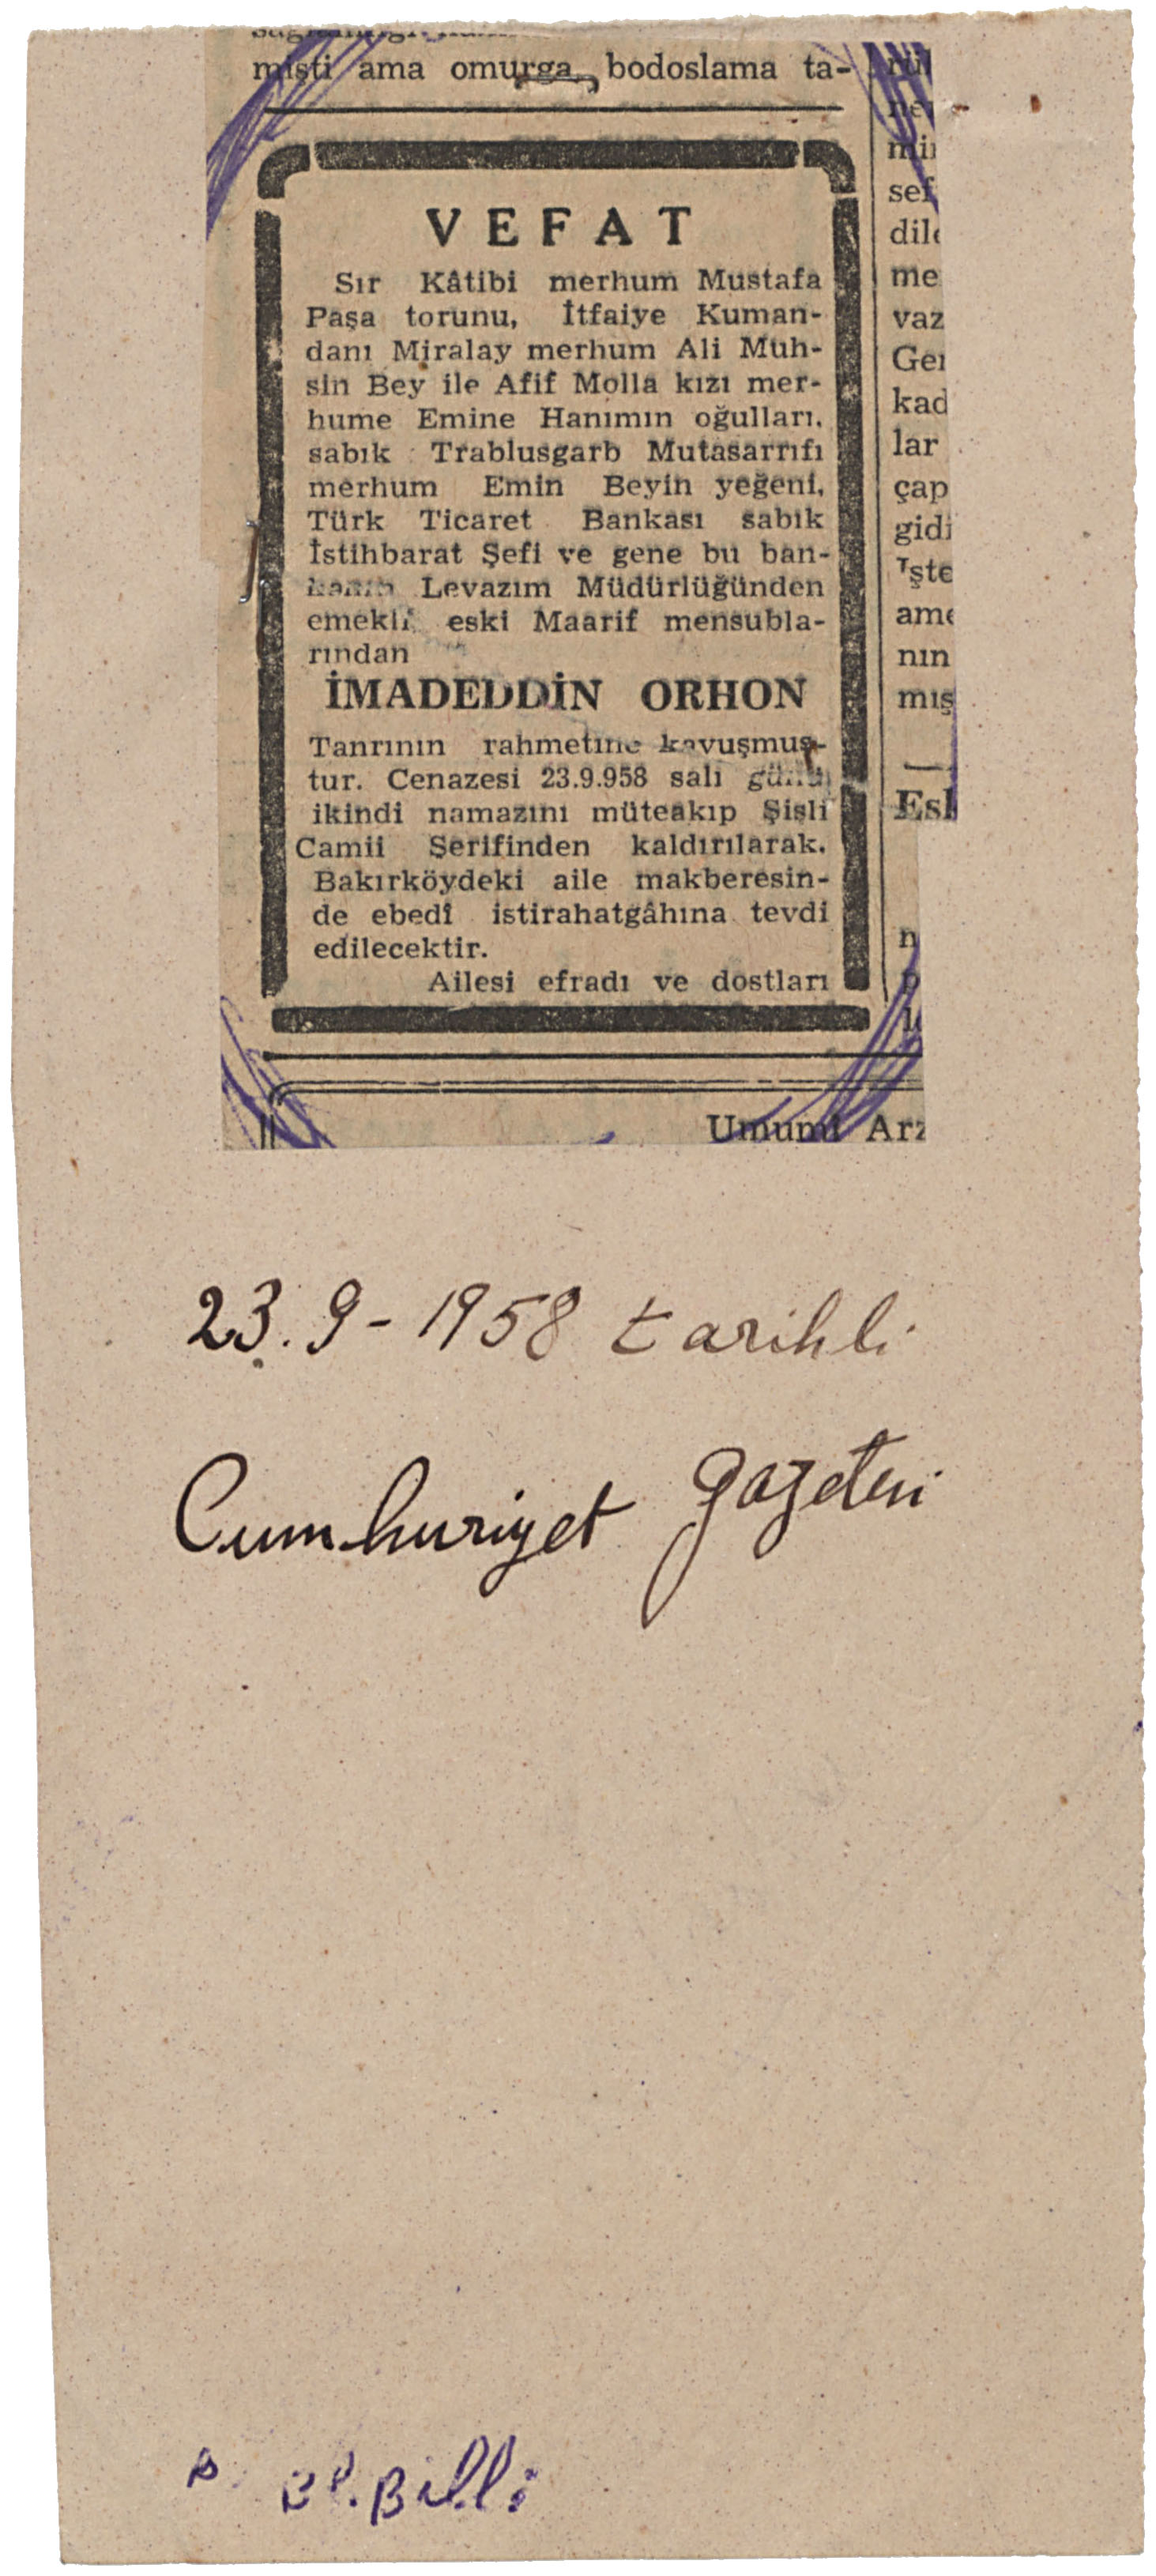 mişti ama omurga, bodoslama ta-
VEFAT
Sır Kâtibi merhum Mustafa
Paşa torunu, İtfaiye Kuman-
danı Miralay merhum Ali Muh-
sin Bey ile Afif Molla kızı mer-
hume Emine Hanımın oğulları,
sabık Trablusgarb Mutasarrıfı
merhum Emin Beyin yeğeni,
Türk Ticaret Bankası sabık
İstihbarat Şefi ve gene bu ban-
kanın Levazım Müdürlüğünden
emekli eski Maarif mensubla-
rından
İMADEDDİN ORHON
Tanrının rahmetine kavuşmuş-
tur. Cenazesi 23.9.958 salı günü
ikindi namazını müteakıp Şişli
Camii Şerifinden kaldırılarak,
Bakırköydeki aile makberesin-
de ebedî istirahatgâhına tevdi
edilecektir.
Ailesi efradı ve dostları
sef
dile
me
vaz
Ger
kad
lar
çap
gidi
İşte
ame
nın
mış
Esk
Umumî Arz
23.9-1958 tarihli
Cumhuriyet gazetesi